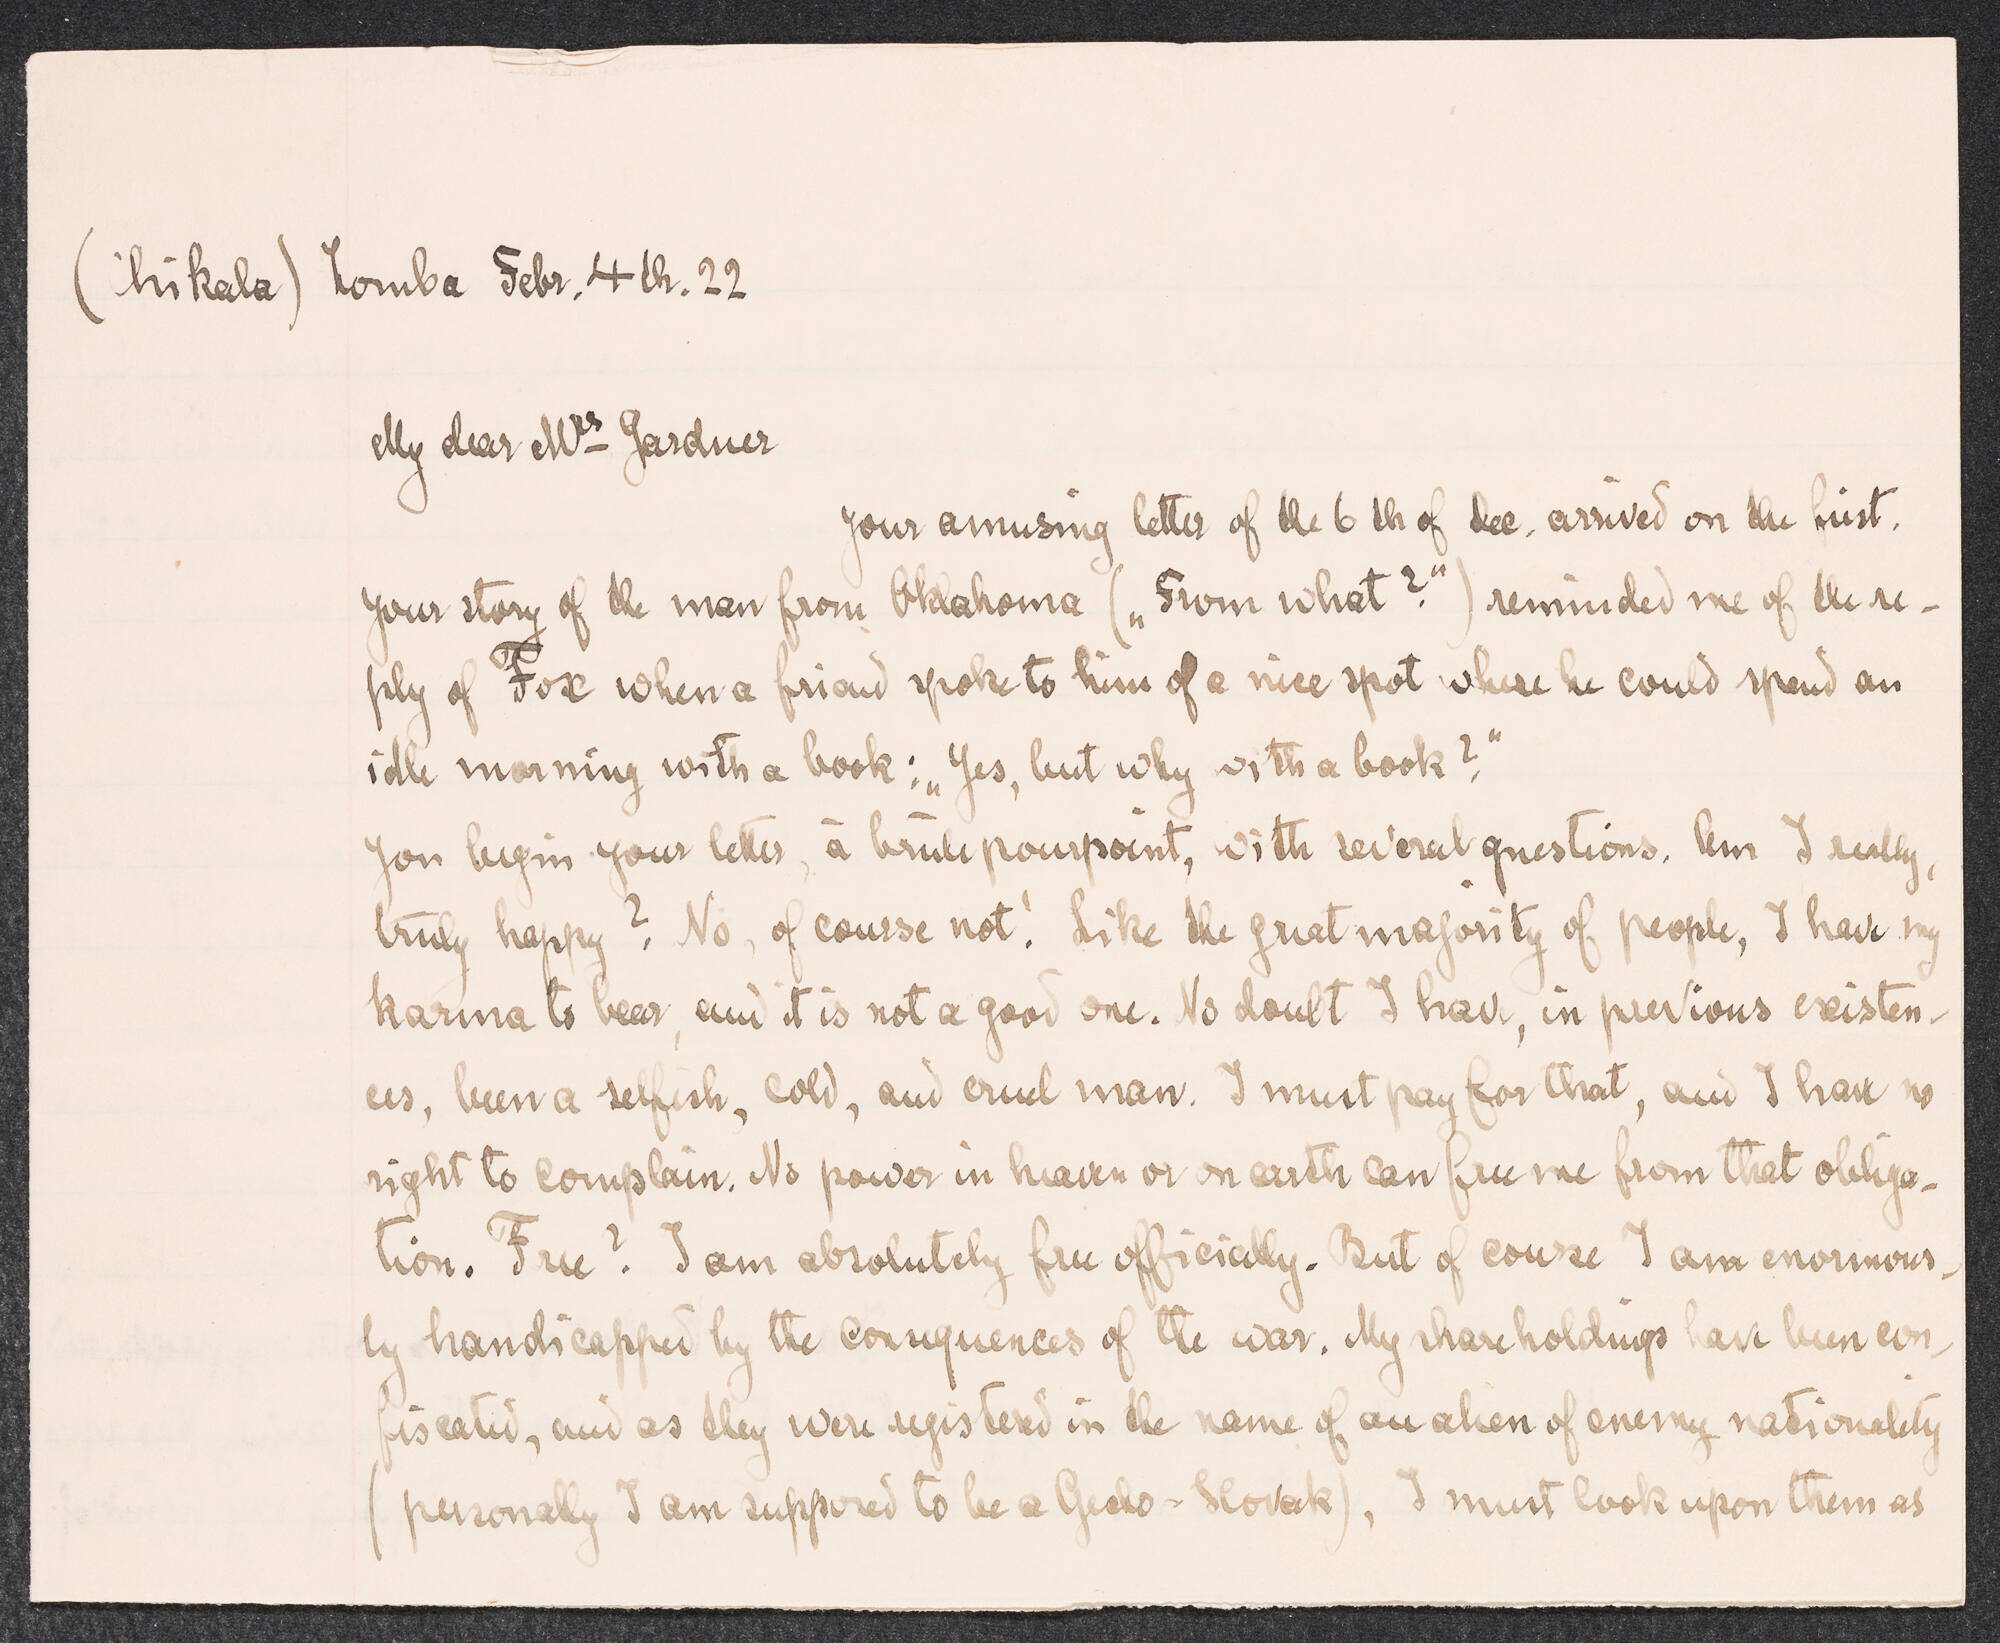 (Chikala) Zomba Febr. 4th. 22
My dear Mrs Gardner
Your amusing letter of the 6th of dec. arrived on the first.
Your story of the man from Oklahoma („From what?“) reminded me of the re-
ply of Fox when a friend spoke to him of a nice spot where he could spend an
idle morning with a book: „Yes, but why with a book?“
You begin your letter, à brûle pourpoint, with several questions. Am I really,
truly happy? No, of course not! Like the great majority of people, I have my
karma to bear, and it is not a good one. No doubt I have, in previous existen-
ces, been a selfish, cold, and cruel man. I must pay for that, and I have no
right to complain. No power in heaven or on earth can free me from that obliga-
tion. Free? I am absolutely free officially. But of course I am enormous-
ly handicapped by the consequences of the war. My shareholdings have been con-
fiscated, and as they were registered in the name of an alien of enemy nationality
(personally I am supposed to be a Czecho-Slovak), I must look upon them as